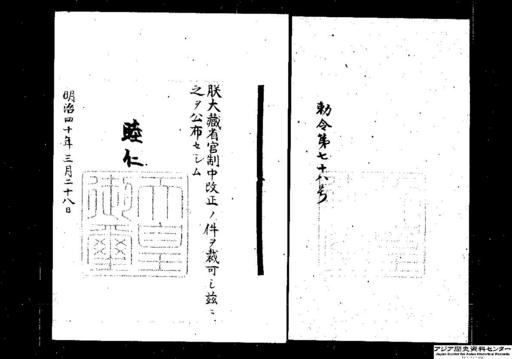 勅令第七十八号
朕大藏省官制中改正ノ件ヲ裁可シ茲ニ
之ヲ公布セシム
睦仁
天皇
御璽
明治四十年三月二十八日
アジア歴史資料センター
Japan Center for Asian Historical Records